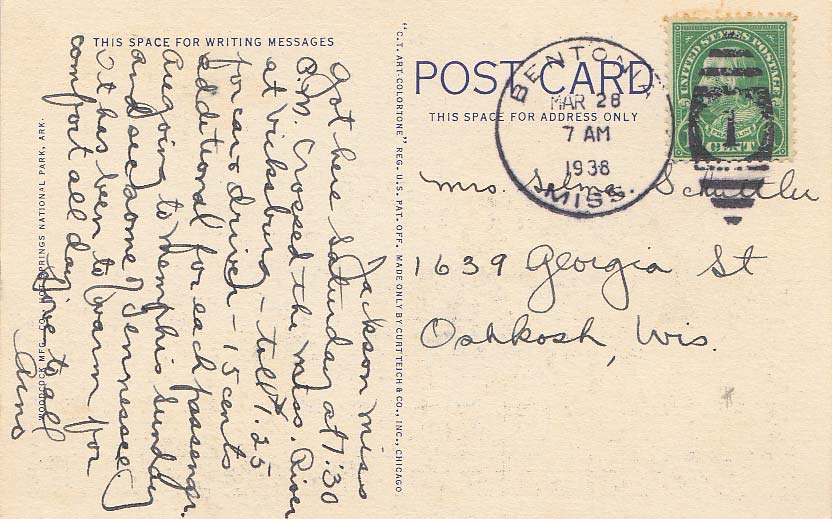 THIS SPACE FOR WRITING MESSAGES
Jackson Miss
Got here Saturday at 1:30
P.M. Crossed the Miss. River
at Vicksburg - toll $1.25
for car & driver - 15 cents
additional for each passengr.
Are going to Memphis Sunday
and see some of Tennessee
It has been to warm for
comfort all day.
Love to all
Arno
WOODCOCK MFG. CO., HOT SPRINGS NATIONAL PARK, ARK.
"C.T. ART-COLORTONE" REG. U.S. PAT. OFF. MADE ONLY BY CURT TEICH & CO., INC., CHICAGO
POST CARD
THIS SPACE FOR ADDRESS ONLY
BENTONIA
MAR 28
7 AM
1938
MISS.
UNITED STATES POSTAGE
1
CENT
Mrs. Selma
1639 Georgia St
Oshkosh, Wis.